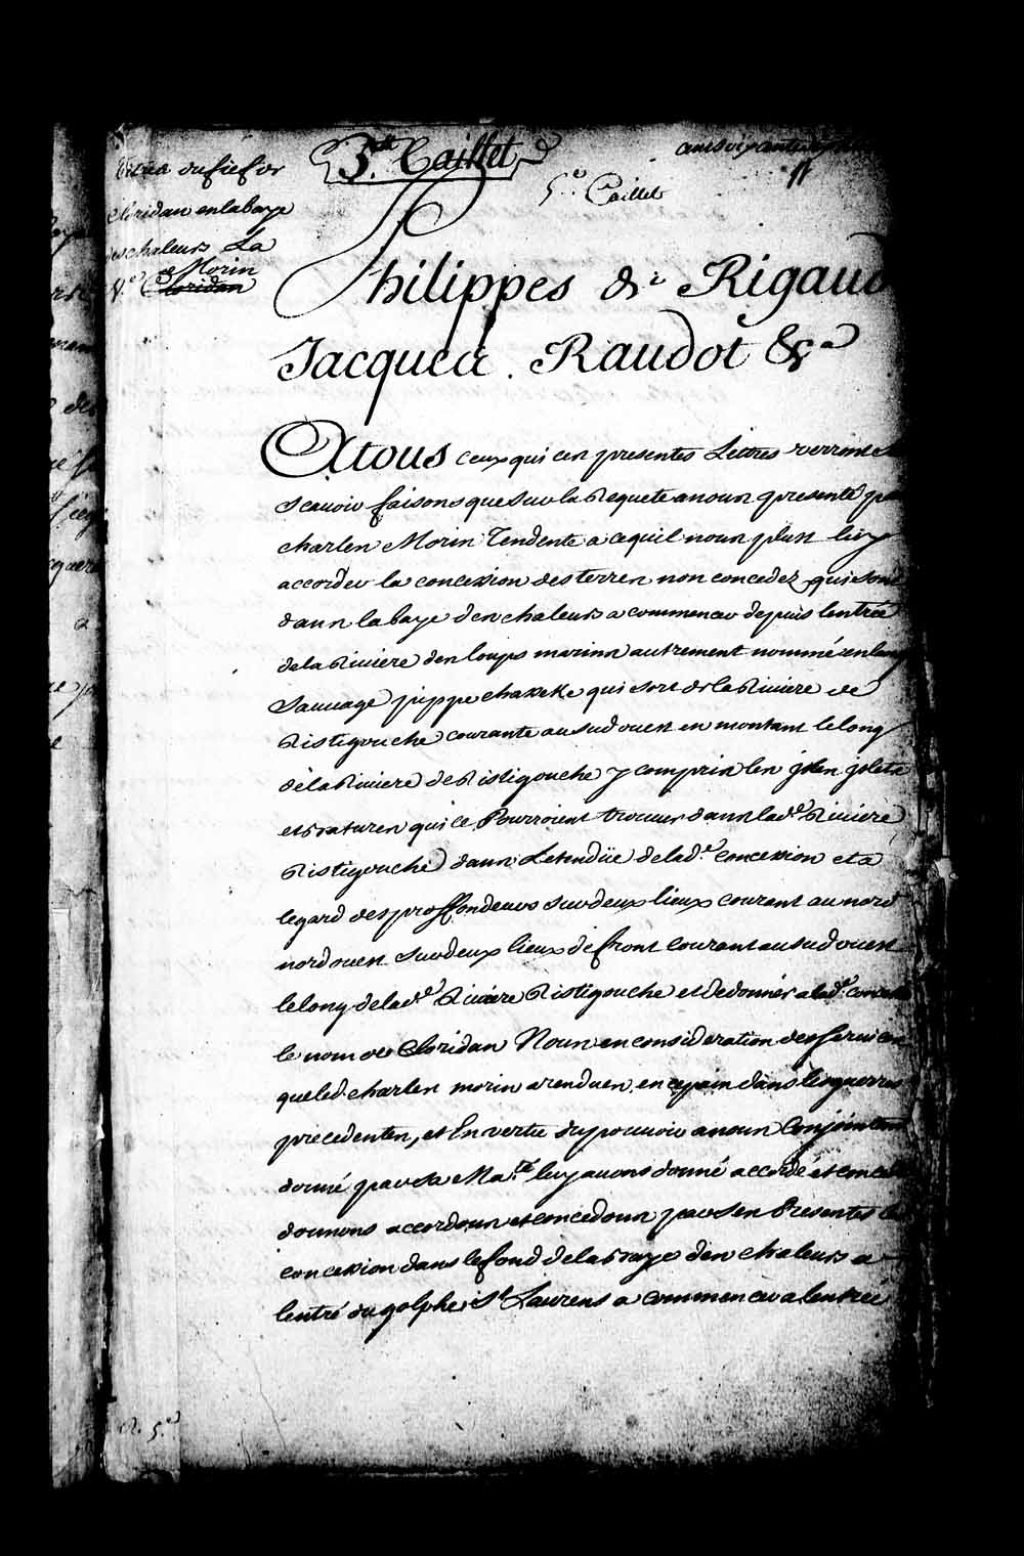 5.e Caillet
5.e Caillet
du fief de
Cloridan en la baye
des chaleurs La
Morin
V.e Cloridan
Philippes de Rigaud
Jacques Raudot &c.a
A tous ceux qui ces presentes Lettres verront
Scavoir faisons que sur la Requete a nous presenté
charles Morin Tendente a ce quil nous plust luy
accorder la concession des terres non concedez qui sont
dans la baye des chaleurs a commencer depuis lentrée
de la Riviere des loups marins autrement nommé en
Sauvage qui sort de la Riviere de
Ristigouche courante au sud ouest en montant le long
de la Riviere de Ristigouche y compris les jsles jslets
et batures qui ce Pourroient trouver dans lad.e Riviere
Ristigouche dans Letendüe de lad.e concession et a
legard des proffondeurs sur deux lieux courant au nord
nord ouest sur deux lieux de front courant au sud ouest
le long de lad.e Riviere Ristigouche et de donner a lad.e
le nom de Cloridan Nous en consideration des services
que led. charles morin a rendues en ce pais dans les guerres
precedentes, et En vertu du pouvoir a nous Conjointem
donné par sa Ma.té luy avons donné accordé et
donnons accordons et concedons par ses Presentes
concession dans le fond de la baye des chaleurs a
lentré du golphe S.t Laurens a commencer a lentrée
R. 5.e